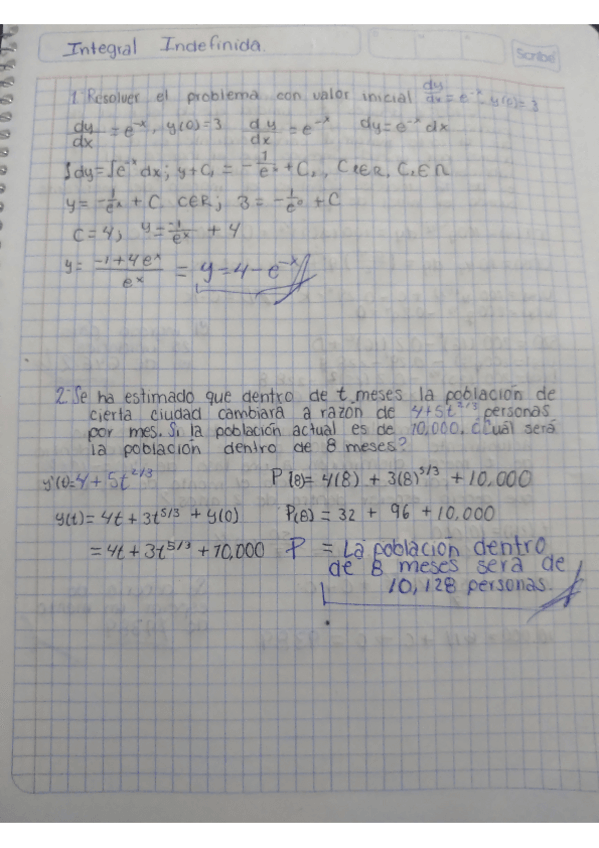 Integral Indefinida.
Scribe
1. Resolver el problema con valor inicial dy/dx = e^-x, y(0)=3
dy/dx = e^-x, y(0)=3   dy/dx = e^-x   dy = e^-x dx
∫dy = ∫e^-x dx; y + C₁ = -1/e^x + C₁, C₁ER, C₁En
y = -1/e^x + C  CER; 3 = -1/e^0 + C
C = 4; y = -1/e^x + 4
y = (-1+4e^x)/e^x = y = 4 - e^-x
2. Se ha estimado que dentro de t meses la población de
cierta ciudad cambiará a razon de 4+5t^2/3 personas
por mes. Si la población actual es de 10,000. ¿Cuál será
la población dentro de 8 meses?
y'()= 4 + 5t^2/3   P(8)= 4(8) + 3(8)^5/3 + 10,000
y(t) = 4t + 3t^5/3 + y(0)   P(8) = 32 + 96 + 10,000
= 4t + 3t^5/3 + 10,000   P = La población dentro
de 8 meses será de
10,128 personas.